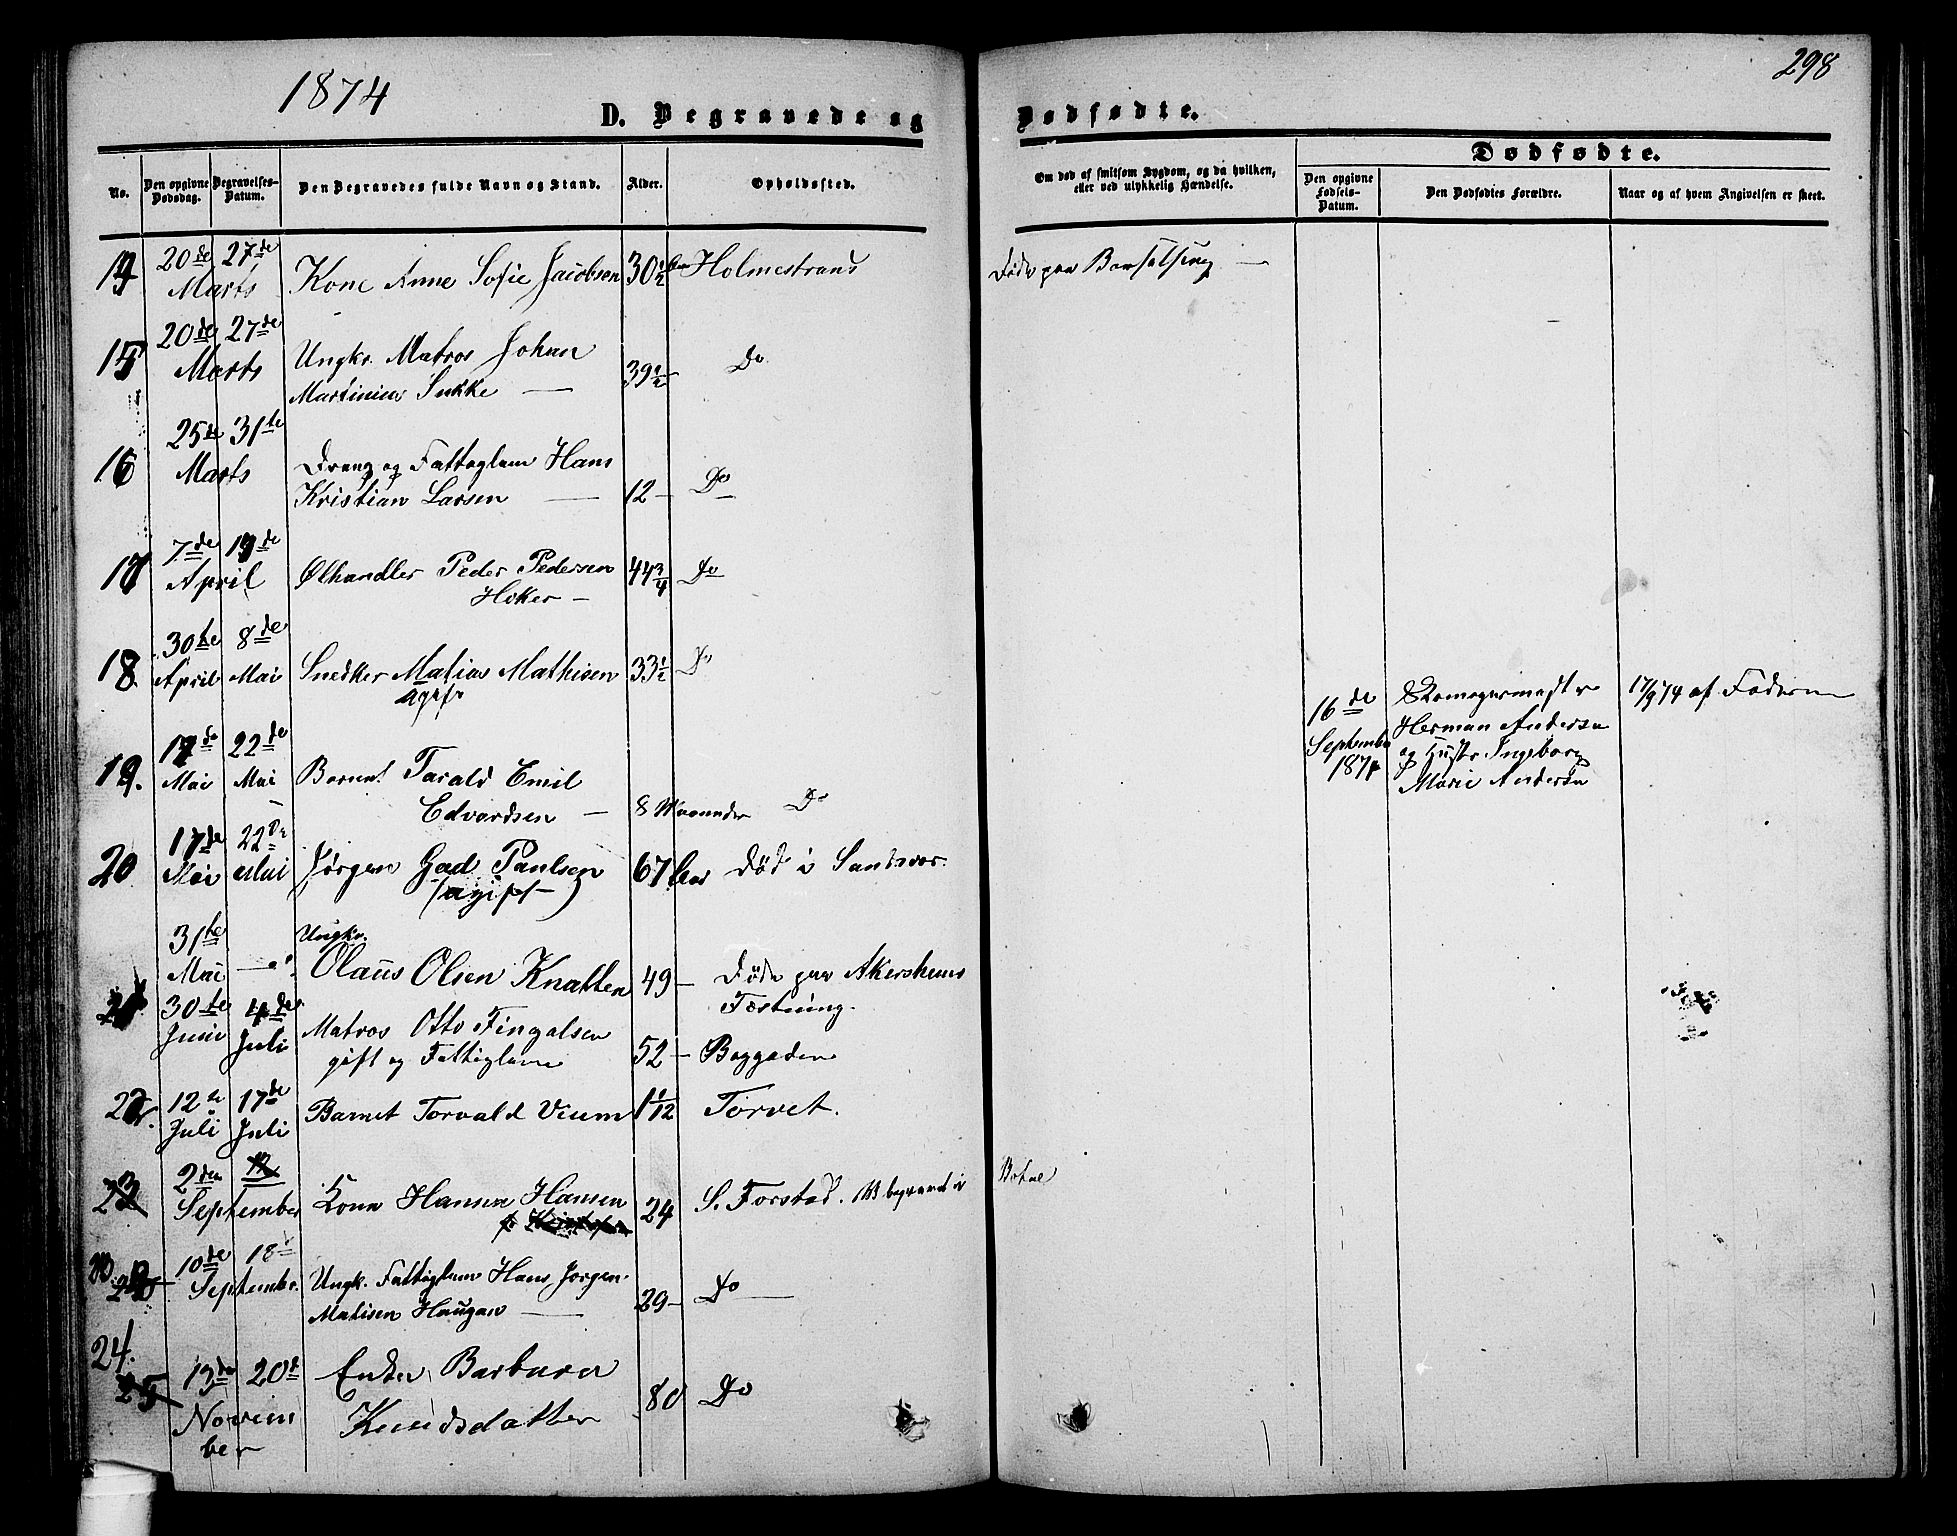 1874
298
D. Begravede og Dødfødte.
No.
Den opgivne Dødsdag.
Begravelses-Datum.
Den Begravedes fulde Navn og Stand.
Alder.
Opholdssted.
Om død af smitsom Sygdom, og da hvilken,
eller ved ulykkelig Hændelse.
Dødfødte.
Den opgivne Fødsels-Datum.
Den Dødfødtes Forældre.
Naar og af hvem Angivelsen er skeet.
14 20de Marts 27de Kone Anne Sofie Jacobsen 30 1/2 Holmestrand Døde paa Barselseng —
15 20de Marts 27de Ungkr. Matros Johan
Martinius Sukke — 39 1/2 — Do
16 25de Marts 31te Dreng og Fattiglem Hans
Kristian Larsen — 12 — Do
17 7de April 19de Ølhandler Peder Pedersen
Høker — 44 3/4 Do
18. 30te April 8de Mai Snedker Matias Mathisen 33 1/2 Do
agift
19. 17de Mai 22de Mai Barnet Tarald Emil
Edvardsen — 8 Maaneder Do
20 17de Mai 22de Mai Jørgen Gad Paulsen 67 Aar Død i Sandsvær.
(agift)
31te Mai — Ungkr.
Olaus Olsen Knatten 49 — Døde paa Akershuus
Fæstning.
21 30te Juni 4de Juli Matros Otto Fingalsen
gift og Fattiglem 52 — Baggaden
22. 12te Juli 17de Juli Barnet Torvald Vium 1 1/12 Torvet.
23 2den September Kone Hanna Hansen 24 S. Forstad. NB begravet i Botne
10de September 18de Ungk. Fattiglem Hans Jørgen
Matisen Haugan — 29 — Do —
24.
25 13de November 20de Enken Barbara
Knudsdatter 80 Do
16de September 1874
Skomagermester
Herman Andersen
og Hustr. Ingeborg
Marie Andersen
17/9 74 af Faderen